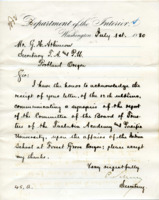 Department of the Interior,
Washington July 1st. 1880
Mr. G. H. Atkinson
Secretary T. A. & P. U.
Portland Oregon
Sir:
I have the honor to acknowledge the
receipt of your letter, of the
communicating a synopsis of the report
of the Committee of the Board of Trus-
tees of the Tualatin Academy and Pacific
University, upon the affairs of the Indian
School at Forest Grove Oregon; please accept
my thanks.
Very respectfully
Secretary